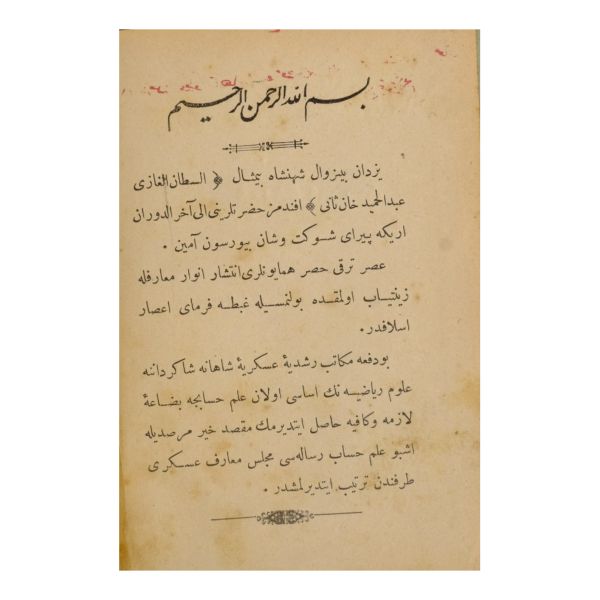 بسم الله الرحمن الرحيم
يزدان بيزوال شهنشاه بيمثال ﴿ السلطان الغازى
عبدالحميد خان ثانى ﴾ افندمز حضرتلرينى الى آخر الدوران
اريكه پيراى شوكت وشان بيورسون آمين ۰
عصر ترقى حصر همايونلرى انتشار انوار معارفله
زينتياب اولمقده بولنمسيله غبطه فرماى اعصار
اسلافدر ۰
بودفعه مكاتب رشديۀ عسكريۀ شاهانه شاكرداننه
علوم رياضيه نك اساسى اولان علم حسابجه بضاعۀ
لازمه وكافيه حاصل ايتديرمك مقصد خير مرصديله
اشبو علم حساب رساله سى مجلس معارف عسكرى
طرفندن ترتيب ايتديرلمشدر ۰